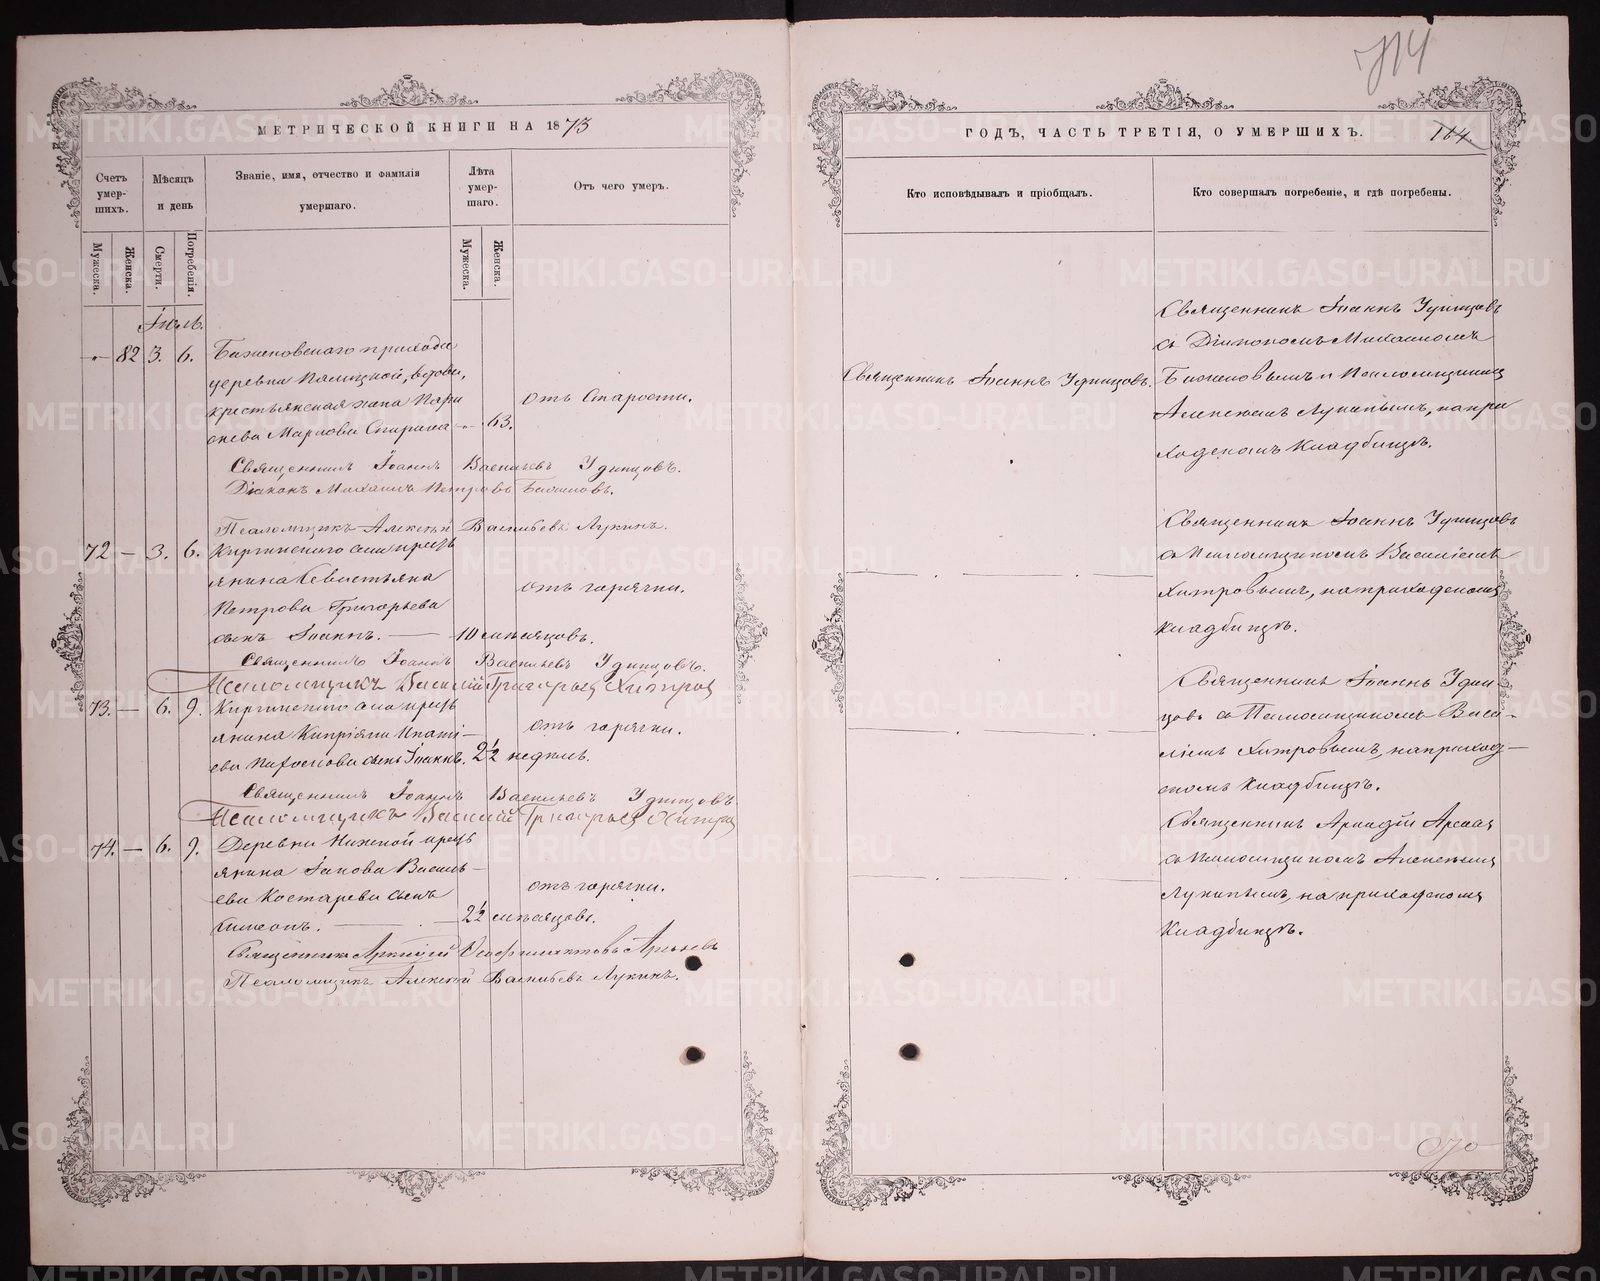 МЕТРИЧЕСКОЙ КНИГИ НА 1873
Счетъ умер-шихъ.
Мѣсяцъ и день
Званіе, имя, отчество и фамилія умершаго.
Лѣта умер-шаго.
Отъ чего умеръ.
Мужеска.
Женска.
Смерти.
Погребенія.
Мужеска.
Женска.
Іюль.
82 3. 6. Баженовскаго прихода
деревни вдова,
крестьянская жена
Маркова Спирина 63.
отъ Старости.
Священникъ Іоаннъ Васильевъ Удинцовъ.
Діаконъ Михаилъ Петровъ Баженовъ.
Псаломщикъ Алексѣй Васильевъ Лукинъ.
72 — 3. 6. Киргинскаго села кресть
янина Севастьяна
Петрова Григорьева
сынъ Іоаннъ. — 10 мѣсяцовъ.
отъ горячки.
Священникъ Іоаннъ Васильевъ Удинцовъ.
Псаломщикъ Василій Григорьевъ Хитровъ
73. — 6. 9. Киргинскаго села кресть
янина Кипріяна Ипаті-
ева сынъ Іоаннъ. 2½ недѣль.
отъ горячки.
Священникъ Іоаннъ Васильевъ Удинцовъ
Псаломщикъ Василій Григорьевъ Хитровъ
74. — 6. 9. Деревни Нижной кресть
янина Іакова Василь-
ева Костарева сынъ
Симеонъ. — 2½ мѣсяцовъ.
отъ горячки.
Священникъ Аркадій
Псаломщикъ Алексѣй Васильевъ Лукинъ.
ГОДЪ, ЧАСТЬ ТРЕТІЯ, О УМЕРШИХЪ.
164
Кто исповѣдывалъ и пріобщалъ.
Кто совершалъ погребеніе, и гдѣ погребены.
Священникъ Іоаннъ Удинцовъ.
Священникъ Іоаннъ Удинцовъ
съ Діакономъ Михаиломъ
Баженовымъ и Псаломщикомъ
Алексѣемъ Лукинымъ, на при
ходскомъ Кладбищѣ.
Священникъ Іоаннъ Удинцовъ
съ Псаломщикомъ Василіемъ
Хитровымъ, на приходскомъ
Кладбищѣ.
Священникъ Іоаннъ Удин
цовъ съ Псаломщикомъ Васи-
ліемъ Хитровымъ, на приход-
скомъ Кладбищѣ.
Священникъ Аркадій
съ Псаломщикомъ Алексѣемъ
Лукинымъ, на приходскомъ
Кладбищѣ.
METRIKI.GASO-URAL.RU